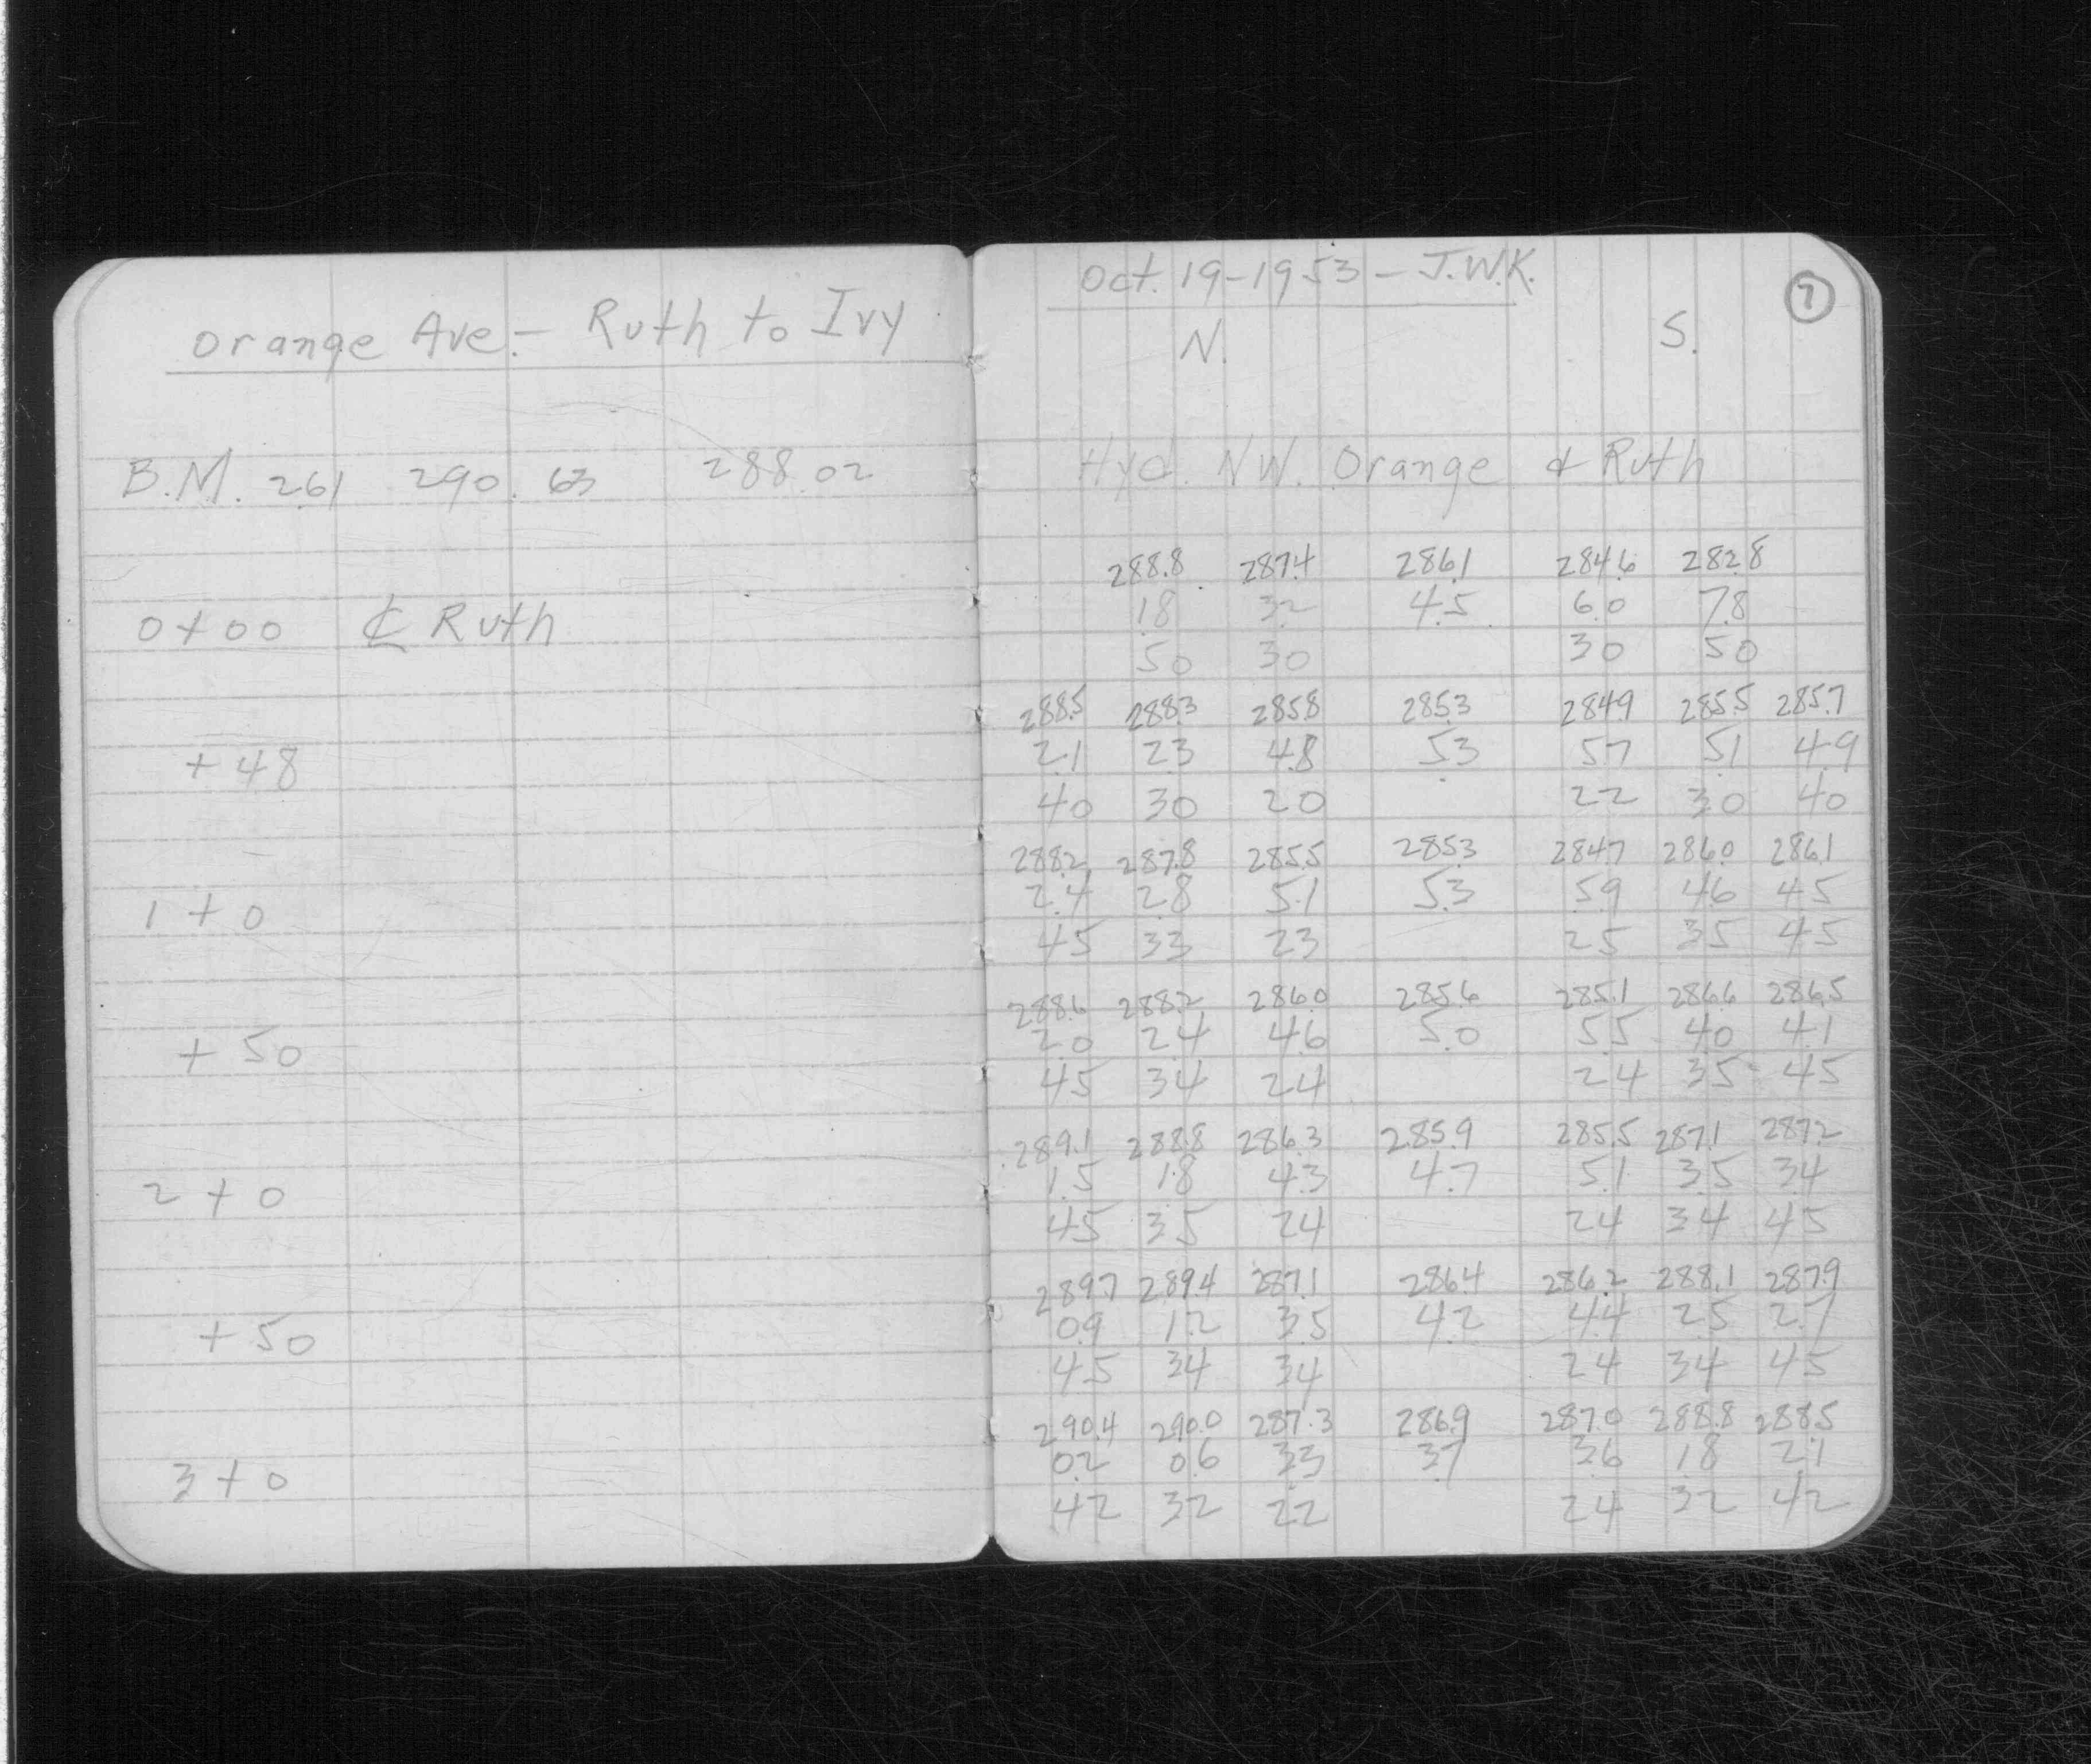 Orange Ave. - Ruth to Ivy
B.M. 2.61 290.63 288.02
0+00 ℄ Ruth
+48
1+0
+50
2+0
+50
3+0
Oct. 19-1953 - J.W.K.
7
N. S.
Hyd. NW. Orange & Ruth
288.8 287.4 286.1 284.6 282.8
1.8 3.2 4.5 6.0 7.8
50 30 30 50
288.5 288.3 285.8 285.3 284.9 285.5 285.7
2.1 2.3 4.8 5.3 5.7 5.1 4.9
40 30 20 22 30 40
288.2 287.8 285.5 285.3 284.7 286.0 286.1
2.4 2.8 5.1 5.3 5.9 4.6 4.5
45 33 23 25 35 45
288.6 288.2 286.0 285.6 285.1 286.6 286.5
2.0 2.4 4.6 5.0 5.5 4.0 4.1
45 34 24 24 35 45
289.1 288.8 286.3 285.9 285.5 287.1 287.2
1.5 1.8 4.3 4.7 5.1 3.5 3.4
45 35 24 24 34 45
289.7 289.4 287.1 286.4 286.2 288.1 287.9
0.9 1.2 3.5 4.2 4.4 2.5 2.7
45 34 34 24 34 45
290.4 290.0 287.3 286.9 287.0 288.8 288.5
0.2 0.6 3.3 3.7 3.6 1.8 2.1
42 32 22 24 32 42